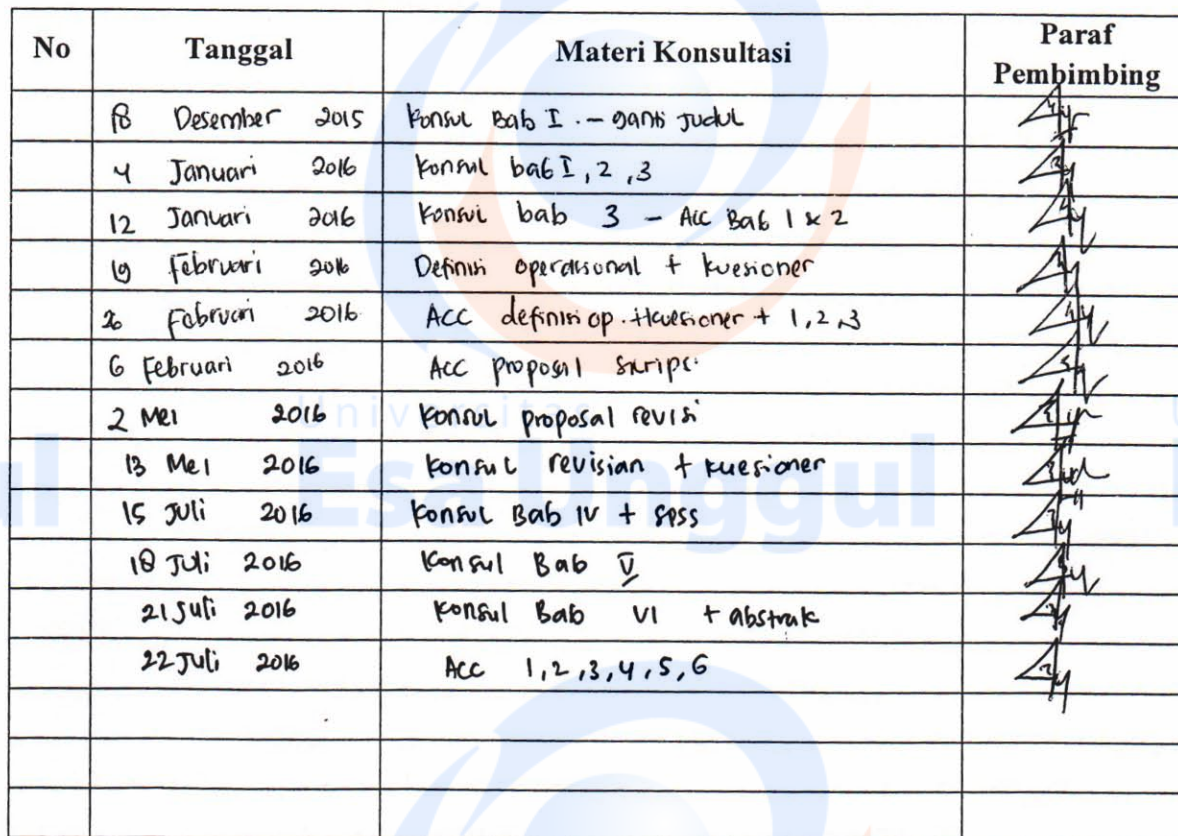 No Tanggal Materi Konsultasi Paraf Pembimbing
18 Desember 2015 Konsul Bab I - ganti Judul
4 Januari 2016 Konsul bab I, 2, 3
12 Januari 2016 Konsul bab 3 - ACC Bab 1 & 2
19 Februari 2016 Definisi operasional + kuesioner
26 Februari 2016 ACC definisi op. + kuesioner + 1, 2, 3
6 Februari 2016 Acc proposal skripsi
2 Mei 2016 Konsul proposal revisi
13 Mei 2016 Konsul revisian + kuesioner
15 Juli 2016 Konsul Bab IV + SPSS
18 Juli 2016 Konsul Bab V
21 Juli 2016 Konsul Bab VI + abstrak
22 Juli 2016 Acc 1, 2, 3, 4, 5, 6
Universitas
Esa Unggul